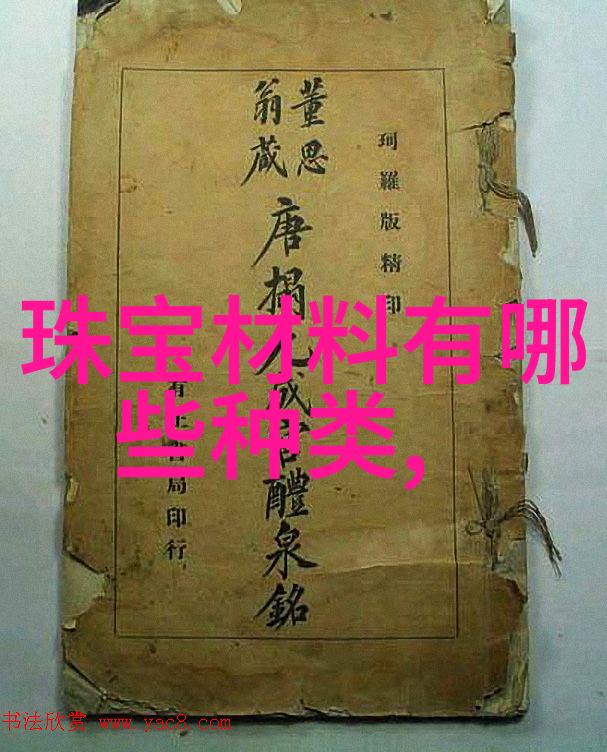 珠宝材料有哪
些种类,
珂羅版精印
董思
翁藏
唐搨九成宮醴泉銘
有正書局印行
书法欣赏 www.yac8.com